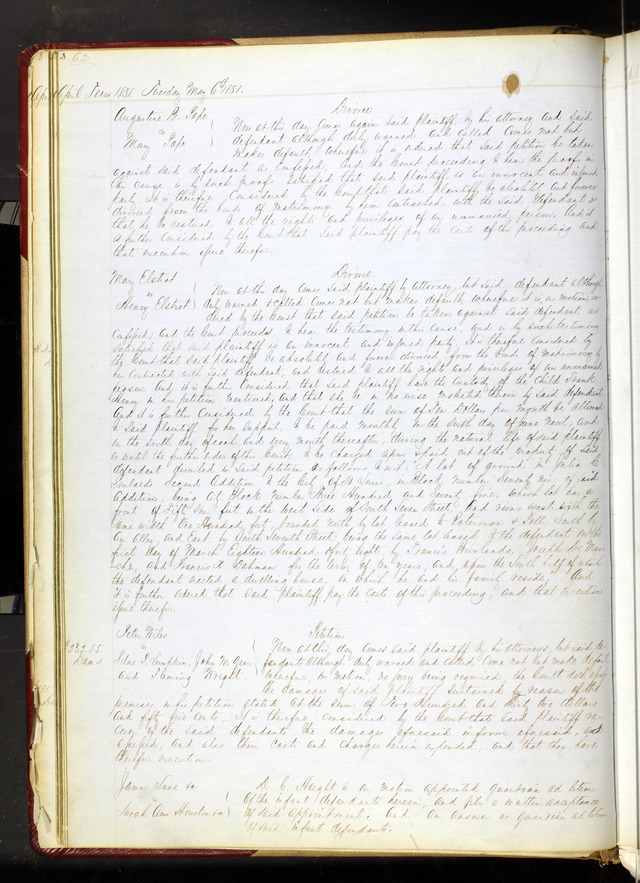 62
April Term 1851. Tuesday May 6th 1851.
Augustine B. Pope
vs
Mary Pope
Divorce
Now at this day comes again said plaintiff by his attorney and said
defendant although duly warned and called comes not but
makes default, wherefore it is ordered that said petition be taken
against said defendant as confessed, and the Court proceeding to hear the proofs in
the cause is by such proofs satisfied that said plaintiff is an innocent and injured
party. It is therefore considered by the Court that said plaintiff be absolutely and forever
divorced from the bonds of matrimony by him contracted with the said defendant &
that he be restored to all the rights and privileges of an unmarried person. And it
is further considered by the Court that said plaintiff pay the costs of this proceeding and
that execution issue therefor.
Mary Elstrot
vs
Henry Elstrot
Divorce.
Now at this day comes said plaintiff by attorney, but said defendant although
duly warned & called comes not but makes default wherefore it is, on motion, or
dered by the Court that said petition be taken against said defendant as
confessed; and the Court proceeds to hear the testimony in this cause, and is by such testimony
satisfied that said plaintiff is an innocent and injured party. It is therefore considered by
the Court that said plaintiff be absolutely and forever divorced from the bonds of matrimony by
her contracted with said defendant, and restored to all the rights and privileges of an unmarried
person. And it is further considered that said plaintiff have the custody of the child Frank
Henry in her petition mentioned, and that she be in no wise molested therein by said defendant.
And it is further considered by the Court that the sum of Ten Dollars per month be allowed
to said plaintiff for her support, to be paid monthly, on the sixth day of June next, and
on the sixth day of each and every month thereafter, during the natural life of said plaintiff
or until the further order of this Court: to be charged upon & paid out of the property of said
defendant described in said petition as follows, to wit: A lot of ground in Julia C.
Soulards Second Addition to the City of St Louis, in Block Number Seventy nine of said
Addition; being City Block Number Three Hundred and Seventy five, which lot has a
front of Fifty feet on the west side of South Seven Street, and runs west with the
same width One Hundred feet, bounded North by lot leased to Peterman & Fall, South by
an Alley, and East by South Seventh Street; being the same lot leased to the defendant on the
first day of March Eighteen Hundred forty eight by Francis
and Francis X. for the term of ten years, and, upon the South half of which
the defendant erected a dwelling house, in which he and his family reside. And
it is further ordered that said plaintiff pay the costs of this proceeding, and that execution
issue therefor.
$232.55
Dam's
Peter Wiles
vs
Silas F. Simpkin, John M. Guer
and Fleming Wright
Petition
Now at this day comes said plaintiff by his attorneys, but said de-
fendants although duly warned and called come not but make default,
wherefore, on motion, no jury being required, the Court doth assess
the damages of said plaintiff sustained by reason of the
premises in his petition stated, at the sum of Two Hundred and thirty two dollars
and fifty five cents. It is therefore considered by the Court that said plaintiff re
cover of the said defendants the damages aforesaid in form aforesaid, as
sessed, and also their costs and charges herein expended, and that they have
therefor execution.
James Lane &c
vs
Sarah Ann Houston &c
D. C. Haight is on motion appointed guardian ad litem
of the infant defendants herein, and files a written acceptance
of said appointment. And an answer as guardian ad litem
of said infant defendants.